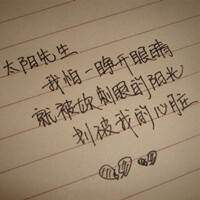 太阳先生
我怕一睁开眼睛
就被妳刺眼的阳光
刺破我的心脏